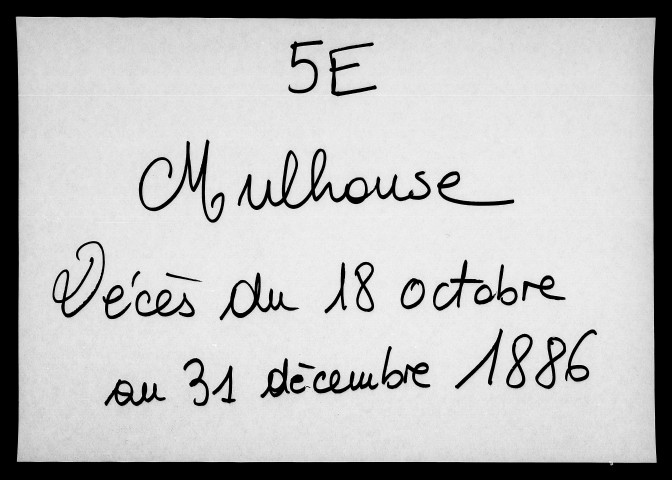 5E
Mulhouse
Décès du 18 octobre
au 31 décembre 1886